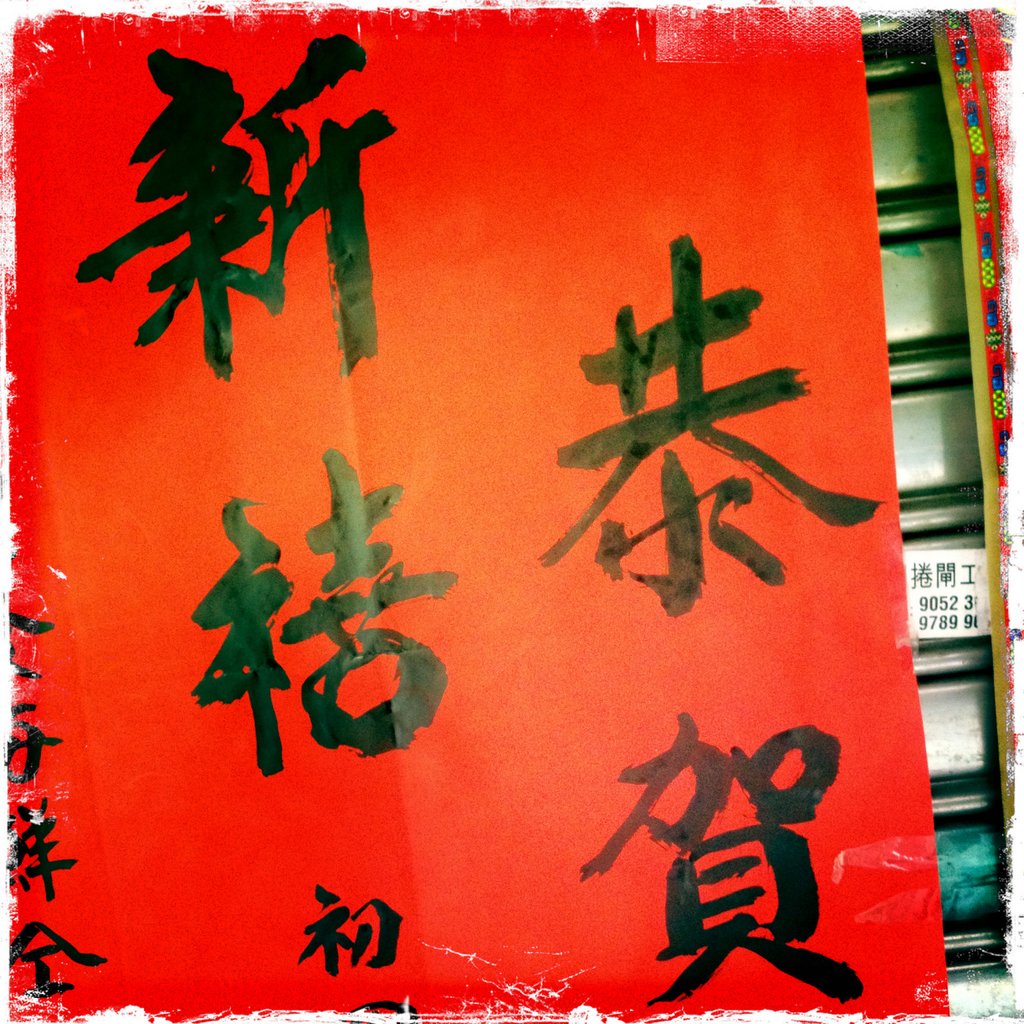 恭賀
新禧
初
祥仝
捲閘工
9052 3
9789 9